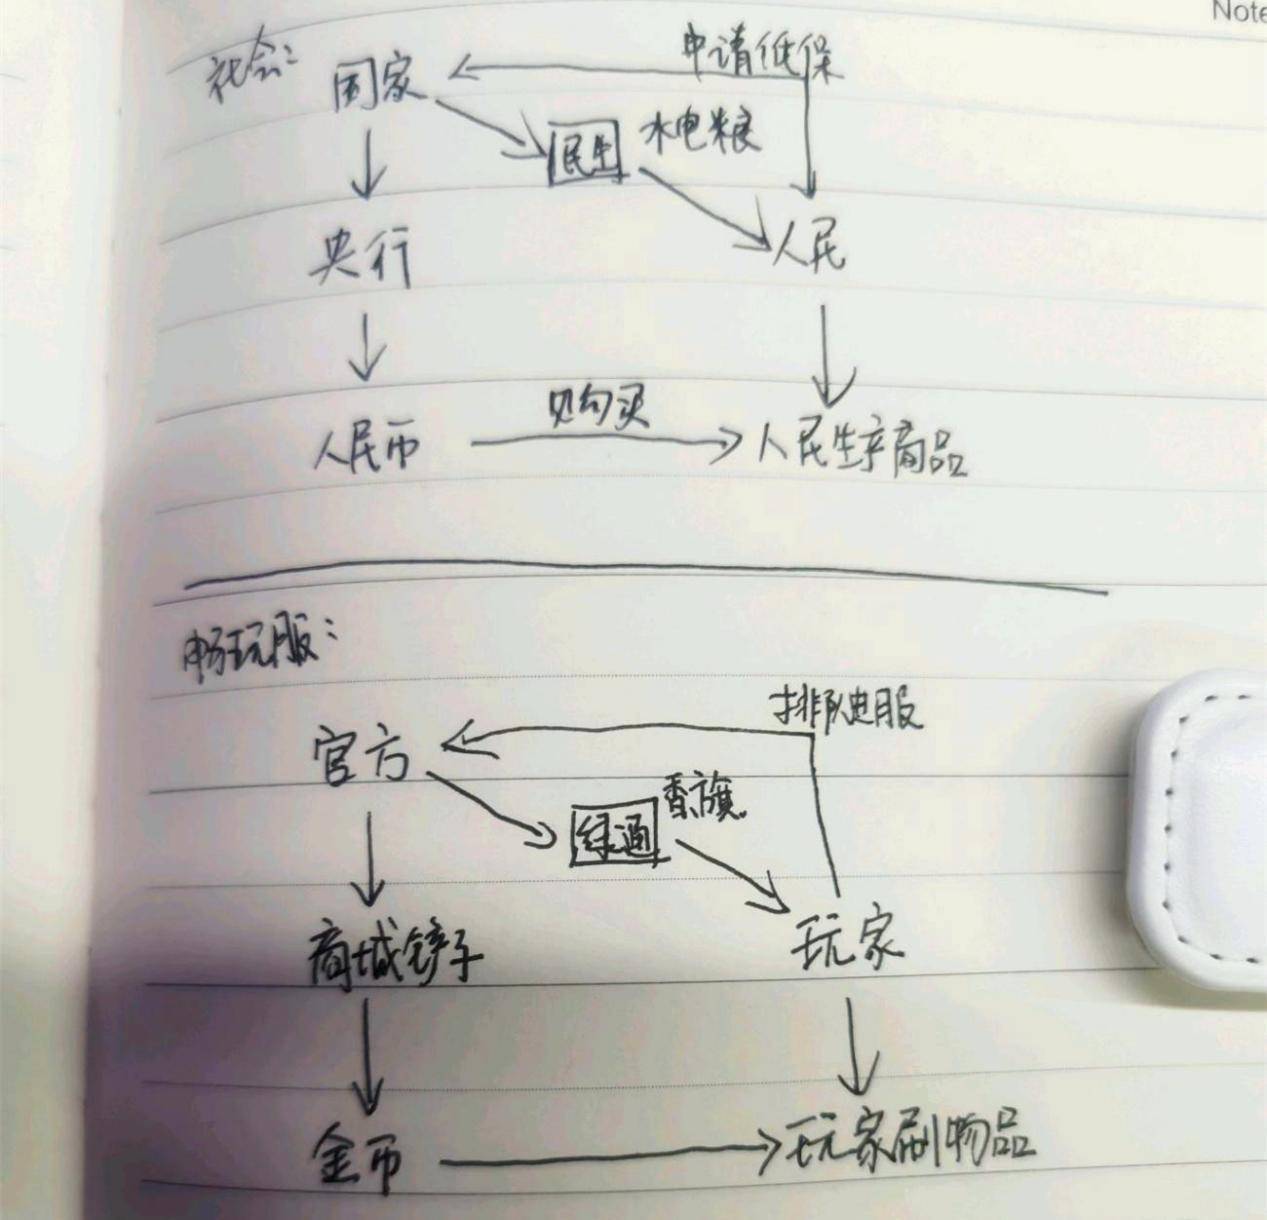 Note
社会：
申请低保
国家
民生
水电粮
央行
人民
购买
人民币
人民生产商品
畅玩服：
排队进服
官方
香旗
绿通
商城铲子
玩家
金币
玩家刷物品